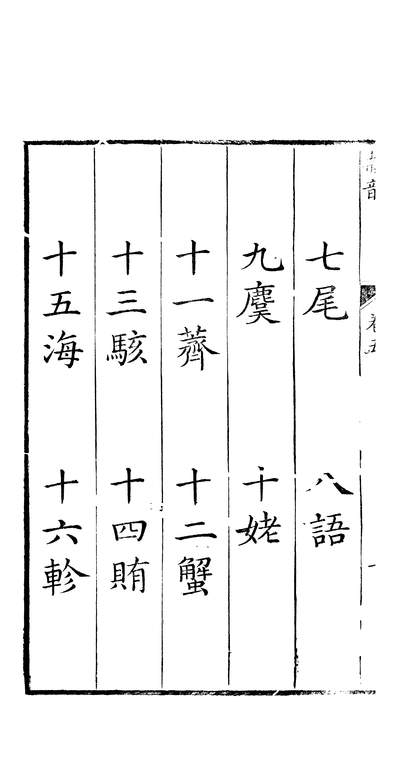 卷五
七尾 八語
九麌 十姥
十一薺 十二蟹
十三駭 十四賄
十五海 十六軫